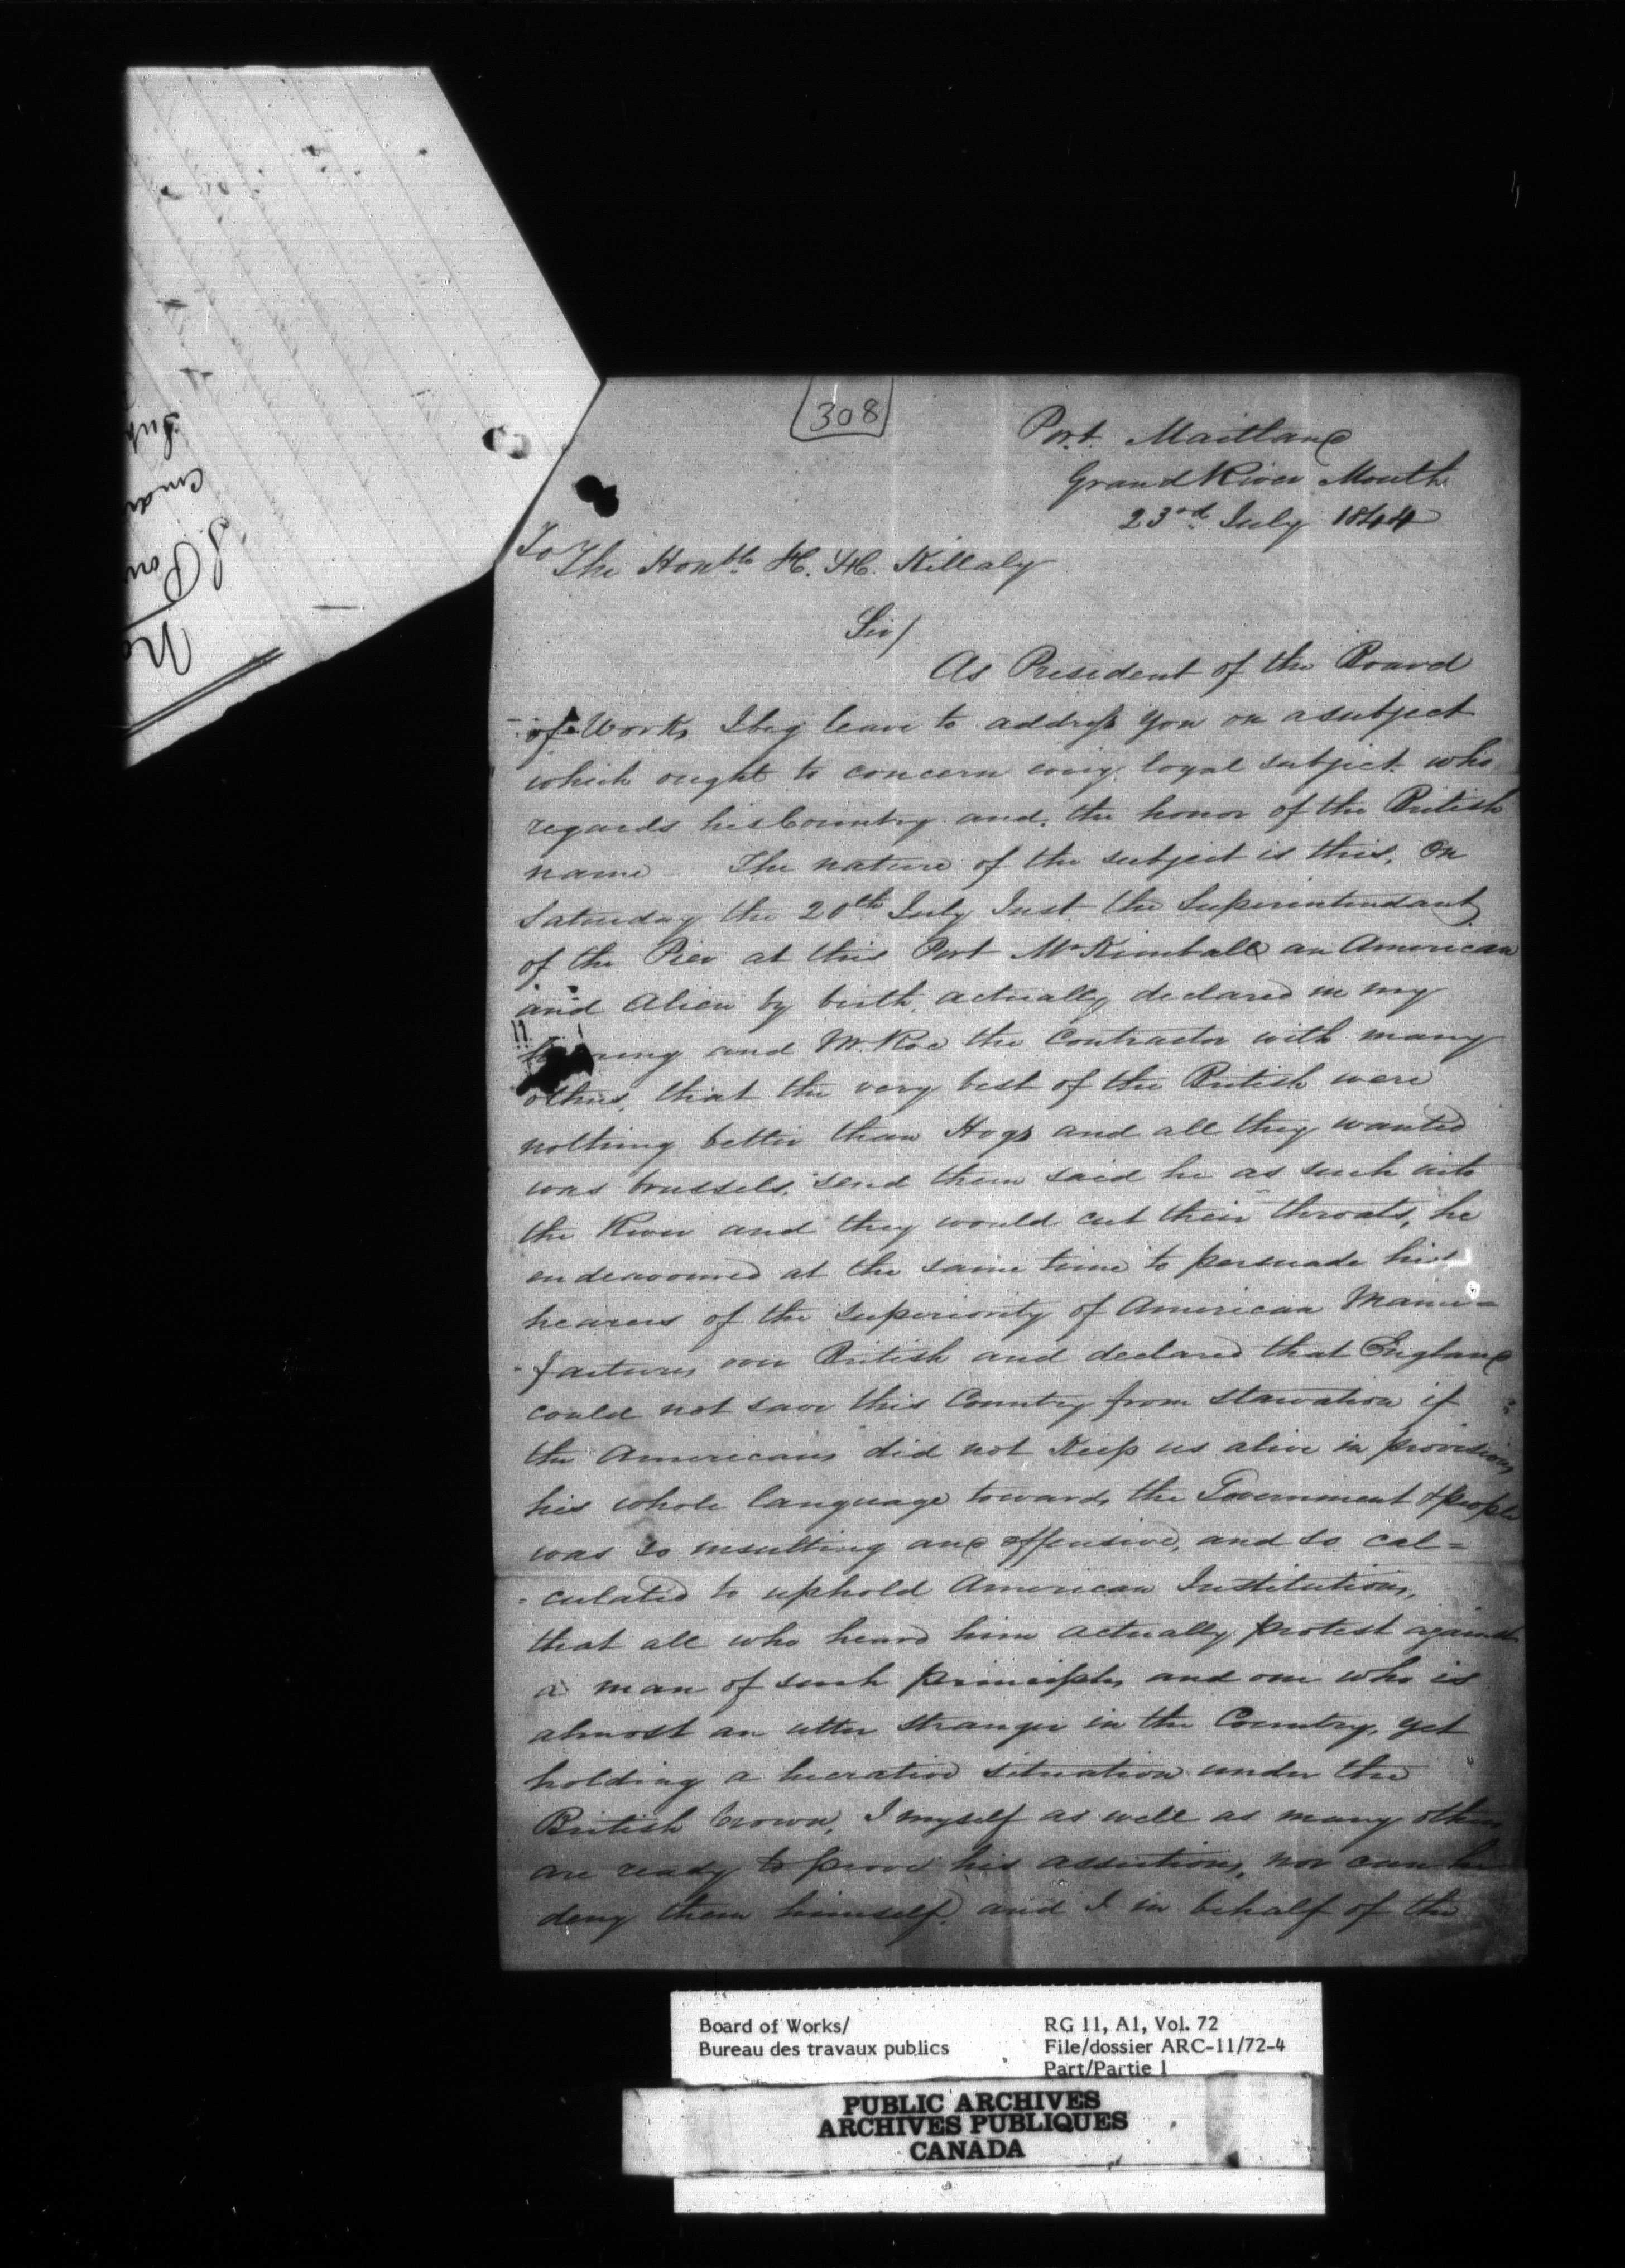 308
Port Maitland
Grand River Mouth
23rd July 1844
To The Honble H. H. Killaly
Sir/
As President of the Board
of Works I beg leave to address you on a subject
which ought to concern every loyal subject who
regards his Country and the honor of the British
name The nature of the subject is this, On
Saturday the 20th July Inst. the Superintendant
of the Pier at this Port Mr Kimball an American
and Alien by birth, actually declared in my
hearing and Mr. Roe the Contractor with many
others, that the very best of the British were
nothing better than Hogs and all they wanted
was brussels, send them said he as such into
the River and they would cut their throats, he
endeavoured at the same time to persuade his
hearers of the Superiority of American Manu=
-factures over British and declared that England
could not save this Country from starvation if
the Americans did not Keep us alive in provisions
his whole language towards the Government & people
was so insulting and offensive, and so cal=
=culated to uphold American Institutions,
that all who heard him actually protest against
a man of such principles and one who is
almost an utter stranger in the Country, yet
holding a lucrative situation under the
British Crown, I myself as well as many others
are ready to prove his assertions, nor can he
deny them himself, and I in behalf of the
Board of Works/
Bureau des travaux publics
RG 11, A1, Vol. 72
File/dossier ARC-11/72-4
Part/Partie 1
PUBLIC ARCHIVES
ARCHIVES PUBLIQUES
CANADA